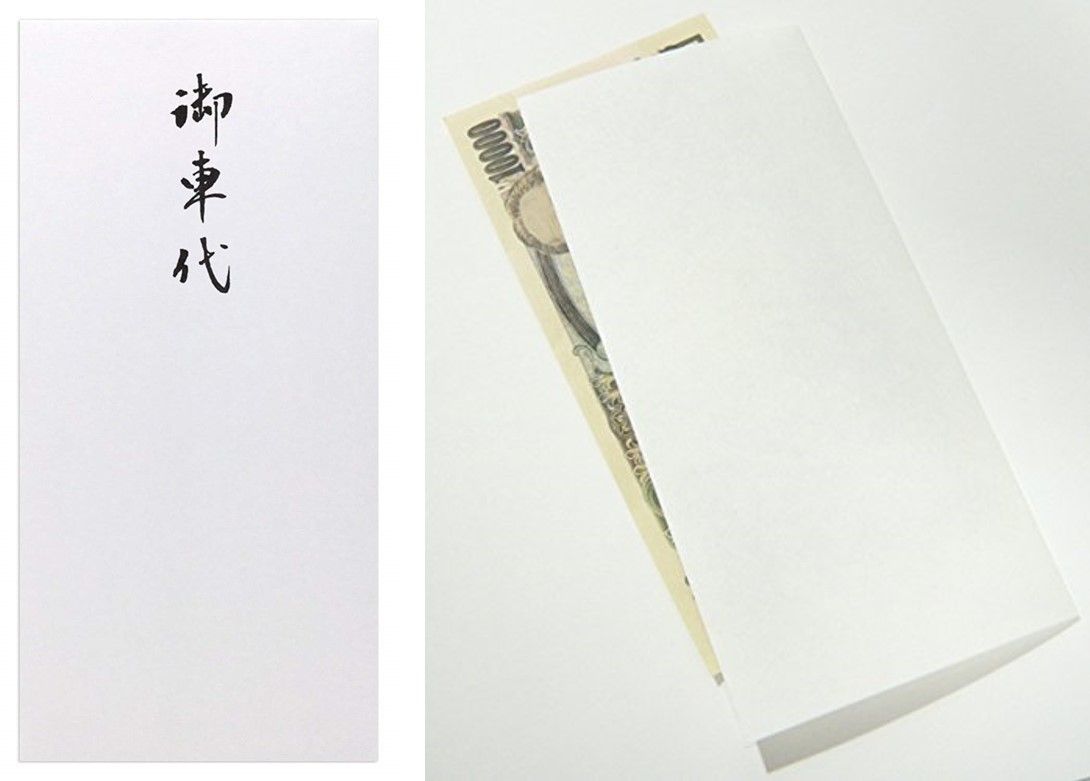 御車代
10000